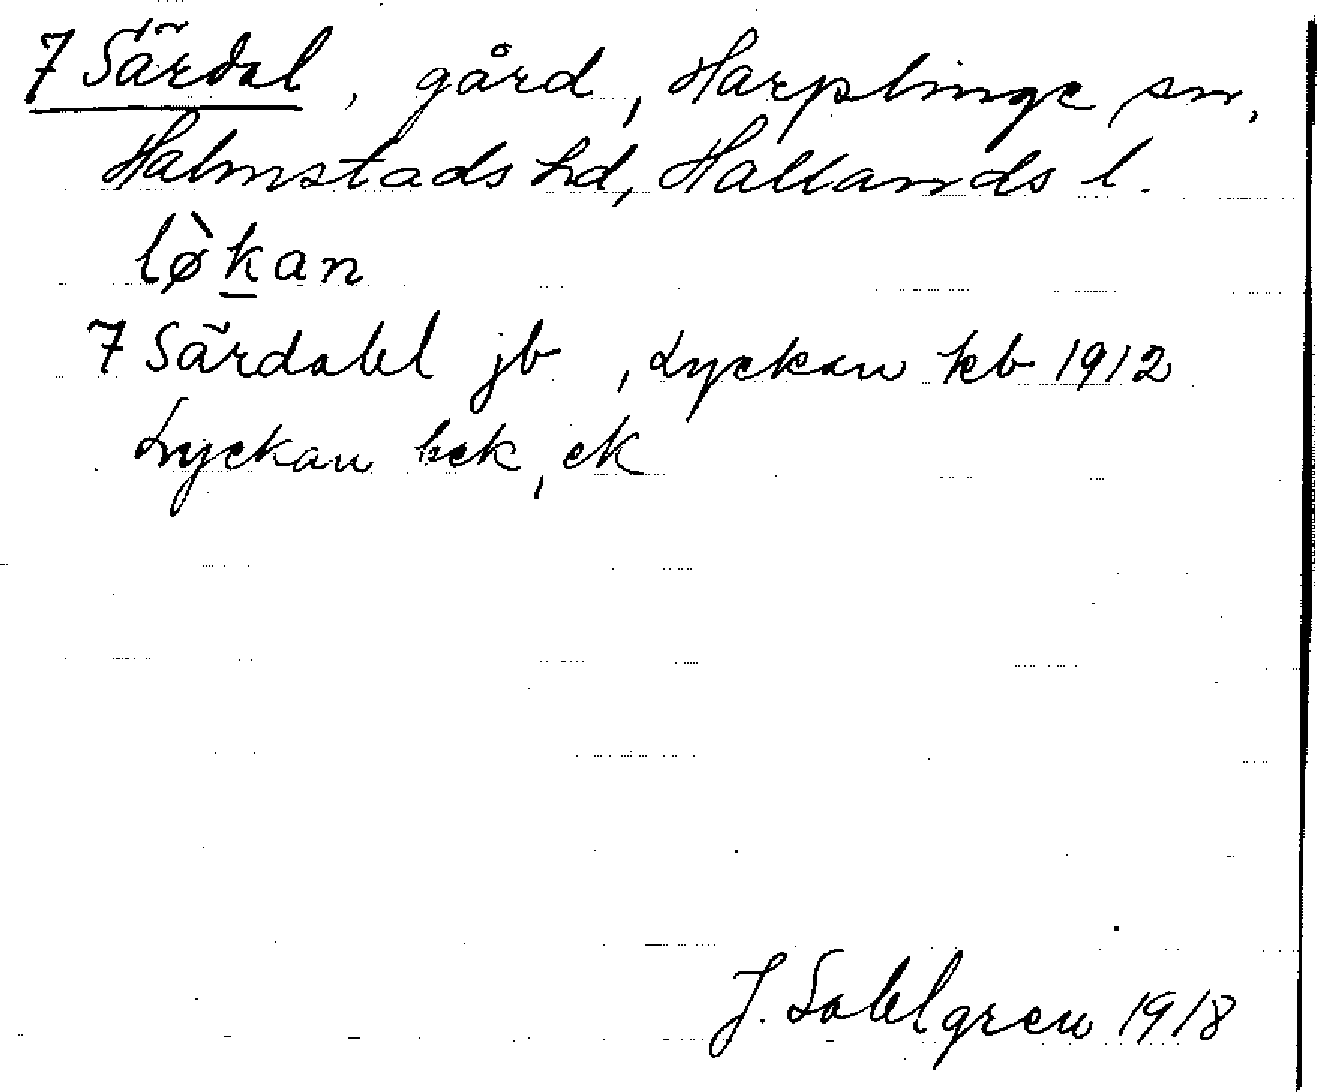 7 Särdal, gård, Harplinge sn,
Halmstads hd, Hallands l.
lø̀kan
7 Särdahl jb, Lyckan kb 1912
Lyckan bek, ek
J. Sahlgren 1918